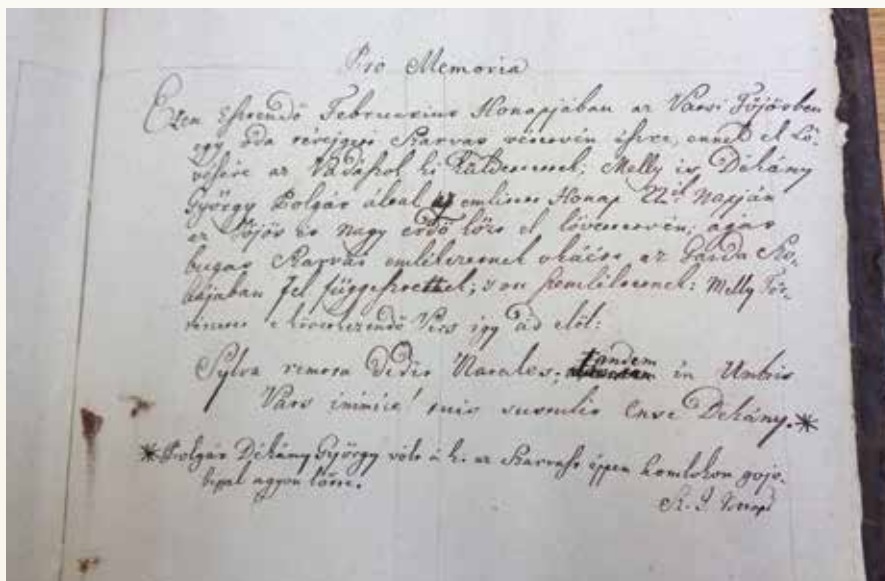 Pro Memoria
Ezen Esztendő Februarius Honapjában az Vácsi Főjösben
egy oda Szarvas vétetvén észre, ennek el lö-
vésére az Vadászok ki küldettenek; Melly is Dékány
György Polgár által az említett Honap 22ik Napján
az és Nagy erdő közt el lövettetvén; agas
bugas Szarvai emlékezetnek okáért az Gárda Szo-
bájában fel függesztettek; s ott szemléltetnek: Melly Tör-
ténetet e következendő Vers így ád elöl:
Sylva remota dedit Natales; tandem in Umbris
Vacs inimice! me sustulit Ense Dékány. *
* Polgár Dékány György vólt á ki az Szarvast éppen homlokon gojo-
bissal agyon lőtte.